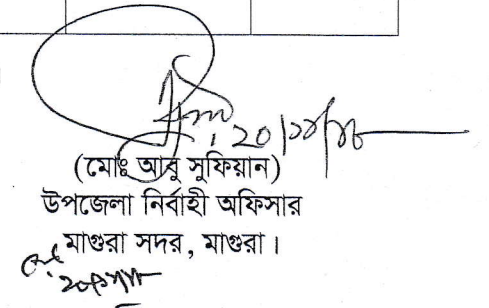 (মোঃ আবু সুফিয়ান)
উপজেলা নির্বাহী অফিসার
মাগুরা সদর, মাগুরা।